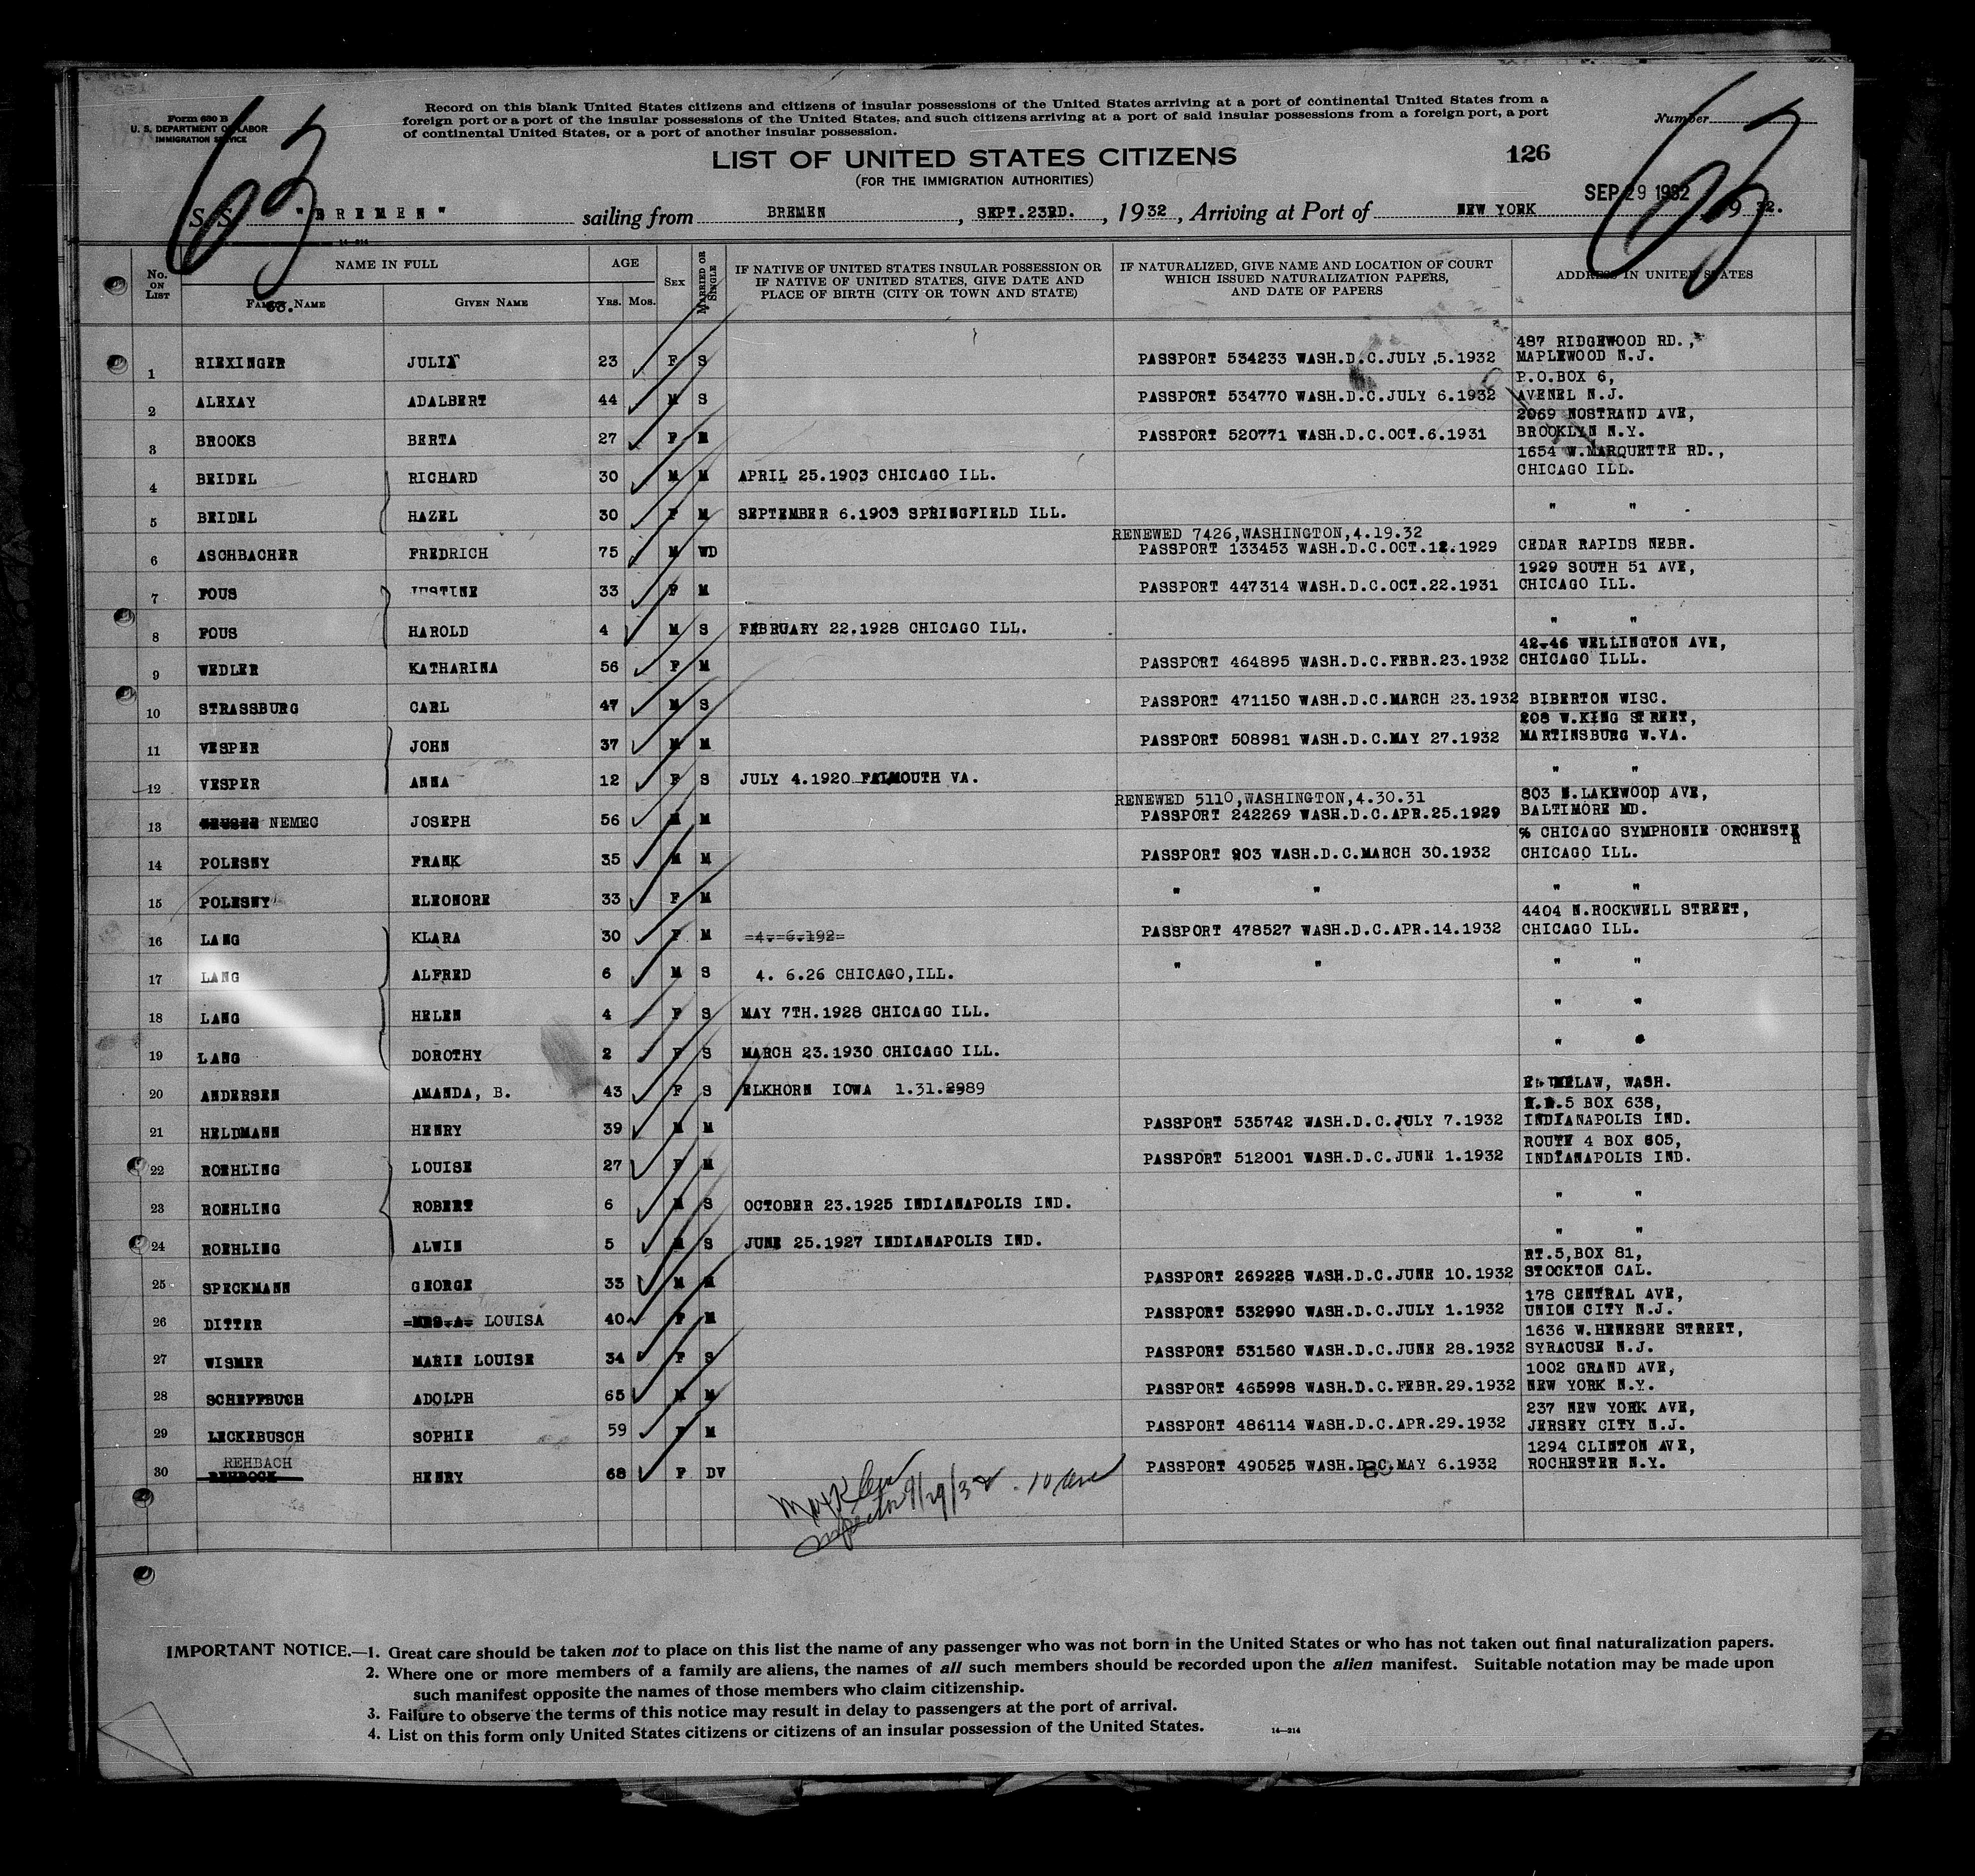 Form 630 B
U. S. DEPARTMENT OF LABOR
IMMIGRATION SERVICE
Record on this blank United States citizens and citizens of insular possessions of the United States arriving at a port of continental United States from a
foreign port or a port of the insular possessions of the United States, and such citizens arriving at a port of said insular possessions from a foreign port, a port
of continental United States, or a port of another insular possession.
Number
63
63
LIST OF UNITED STATES CITIZENS
126
(FOR THE IMMIGRATION AUTHORITIES)
SEP 29 1932
S. S. "BREMEN" sailing from BREMEN, SEPT.23RD., 1932, Arriving at Port of NEW YORK 1932.
14—214
No. ON LIST
NAME IN FULL
FAMILY NAME
GIVEN NAME
AGE
YRS. MOS.
SEX
MARRIED OR SINGLE
IF NATIVE OF UNITED STATES INSULAR POSSESSION OR
IF NATIVE OF UNITED STATES, GIVE DATE AND
PLACE OF BIRTH (CITY OR TOWN AND STATE)
IF NATURALIZED, GIVE NAME AND LOCATION OF COURT
WHICH ISSUED NATURALIZATION PAPERS,
AND DATE OF PAPERS
ADDRESS IN UNITED STATES
63.
487 RIDGEWOOD RD.,
1 RIEXINGER JULIA 23 F S PASSPORT 534233 WASH.D.C.JULY ,5.1932 MAPLEWOOD N.J.
P.O.BOX 6,
2 ALEXAY ADALBERT 44 M S PASSPORT 534770 WASH.D.C.JULY 6.1932 AVENEL N.J.
2069 NOSTRAND AVE,
3 BROOKS BERTA 27 F M PASSPORT 520771 WASH.D.C.OCT.6.1931 BROOKLYN N.Y.
1654 W.MARQUETTE RD.,
4 BEIDEL RICHARD 30 M M APRIL 25.1903 CHICAGO ILL. CHICAGO ILL.
5 BEIDEL HAZEL 30 F M SEPTEMBER 6.1903 SPRINGFIELD ILL. " "
RENEWED 7426,WASHINGTON,4.19.32
6 ASCHBACHER FREDRICH 75 M WD PASSPORT 133453 WASH.D.C.OCT.12.1929 CEDAR RAPIDS NEBR.
1929 SOUTH 51 AVE,
7 FOUS JUSTINE 33 F M PASSPORT 447314 WASH.D.C.OCT.22.1931 CHICAGO ILL.
8 FOUS HAROLD 4 M S FEBRUARY 22.1928 CHICAGO ILL. " "
42-46 WELLINGTON AVE,
9 WEDLER KATHARINA 56 F M PASSPORT 464895 WASH.D.C.FEBR.23.1932 CHICAGO ILLL.
10 STRASSBURG CARL 47 M S PASSPORT 471150 WASH.D.C.MARCH 23.1932 BIBERTON WISC.
208 W.KING STREET,
11 VESPER JOHN 37 M M PASSPORT 508981 WASH.D.C.MAY 27.1932 MARTINSBURG W.VA.
12 VESPER ANNA 12 F S JULY 4.1920 FALMOUTH VA. " "
RENEWED 5110,WASHINGTON,4.30.31 803 N.LAKEWOOD AVE,
13 NEMEC JOSEPH 56 M M PASSPORT 242269 WASH.D.C.APR.25.1929 BALTIMORE MD.
% CHICAGO SYMPHONIE ORCHESTR
14 POLESNY FRANK 35 M M PASSPORT 903 WASH.D.C.MARCH 30.1932 CHICAGO ILL.
15 POLESNY ELEONORE 33 F M " " " "
4404 N.ROCKWELL STREET,
16 LANG KLARA 30 F M =4.=6.192= PASSPORT 478527 WASH.D.C.APR.14.1932 CHICAGO ILL.
17 LANG ALFRED 6 M S 4. 6.26 CHICAGO,ILL. " " " "
18 LANG HELEN 4 F S MAY 7TH.1928 CHICAGO ILL. " "
19 LANG DOROTHY 2 F S MARCH 23.1930 CHICAGO ILL. " "
20 ANDERSEN AMANDA, B. 43 F S ELKHORN IOWA 1.31.2989 WASH.
5 BOX 638,
21 HELDMANN HENRY 39 M M PASSPORT 535742 WASH.D.C.JULY 7.1932 INDIANAPOLIS IND.
ROUTE 4 BOX 605,
22 ROEHLING LOUISE 27 F M PASSPORT 512001 WASH.D.C.JUNE 1.1932 INDIANAPOLIS IND.
23 ROEHLING ROBERT 6 M S OCTOBER 23.1925 INDIANAPOLIS IND. " "
24 ROEHLING ALWIN 5 M S JUNE 25.1927 INDIANAPOLIS IND. " "
RT.5,BOX 81,
25 SPECKMANN GEORGE 33 M M PASSPORT 269228 WASH.D.C.JUNE 10.1932 STOCKTON CAL.
178 CENTRAL AVE,
26 DITTER =MRS.A.= LOUISA 40 F M PASSPORT 532990 WASH.D.C.JULY 1.1932 UNION CITY N.J.
1636 W.HENESEE STREET,
27 WISMER MARIE LOUISE 34 F S PASSPORT 531560 WASH.D.C.JUNE 28.1932 SYRACUSE N.J.
1002 GRAND AVE,
28 SCHEFFBUCH ADOLPH 65 M M PASSPORT 465998 WASH.D.C.FEBR.29.1932 NEW YORK N.Y.
237 NEW YORK AVE,
29 LECKEBUSCH SOPHIE 59 F M PASSPORT 486114 WASH.D.C.APR.29.1932 JERSEY CITY N.J.
REHBACH 1294 CLINTON AVE,
30 REHBOCK HENRY 68 F DV PASSPORT 490525 WASH.D.C.MAY 6.1932 ROCHESTER N.Y.
80
Inspector 9/29/32
IMPORTANT NOTICE.—1. Great care should be taken not to place on this list the name of any passenger who was not born in the United States or who has not taken out final naturalization papers.
2. Where one or more members of a family are aliens, the names of all such members should be recorded upon the alien manifest. Suitable notation may be made upon
such manifest opposite the names of those members who claim citizenship.
3. Failure to observe the terms of this notice may result in delay to passengers at the port of arrival.
4. List on this form only United States citizens or citizens of an insular possession of the United States.
14—214